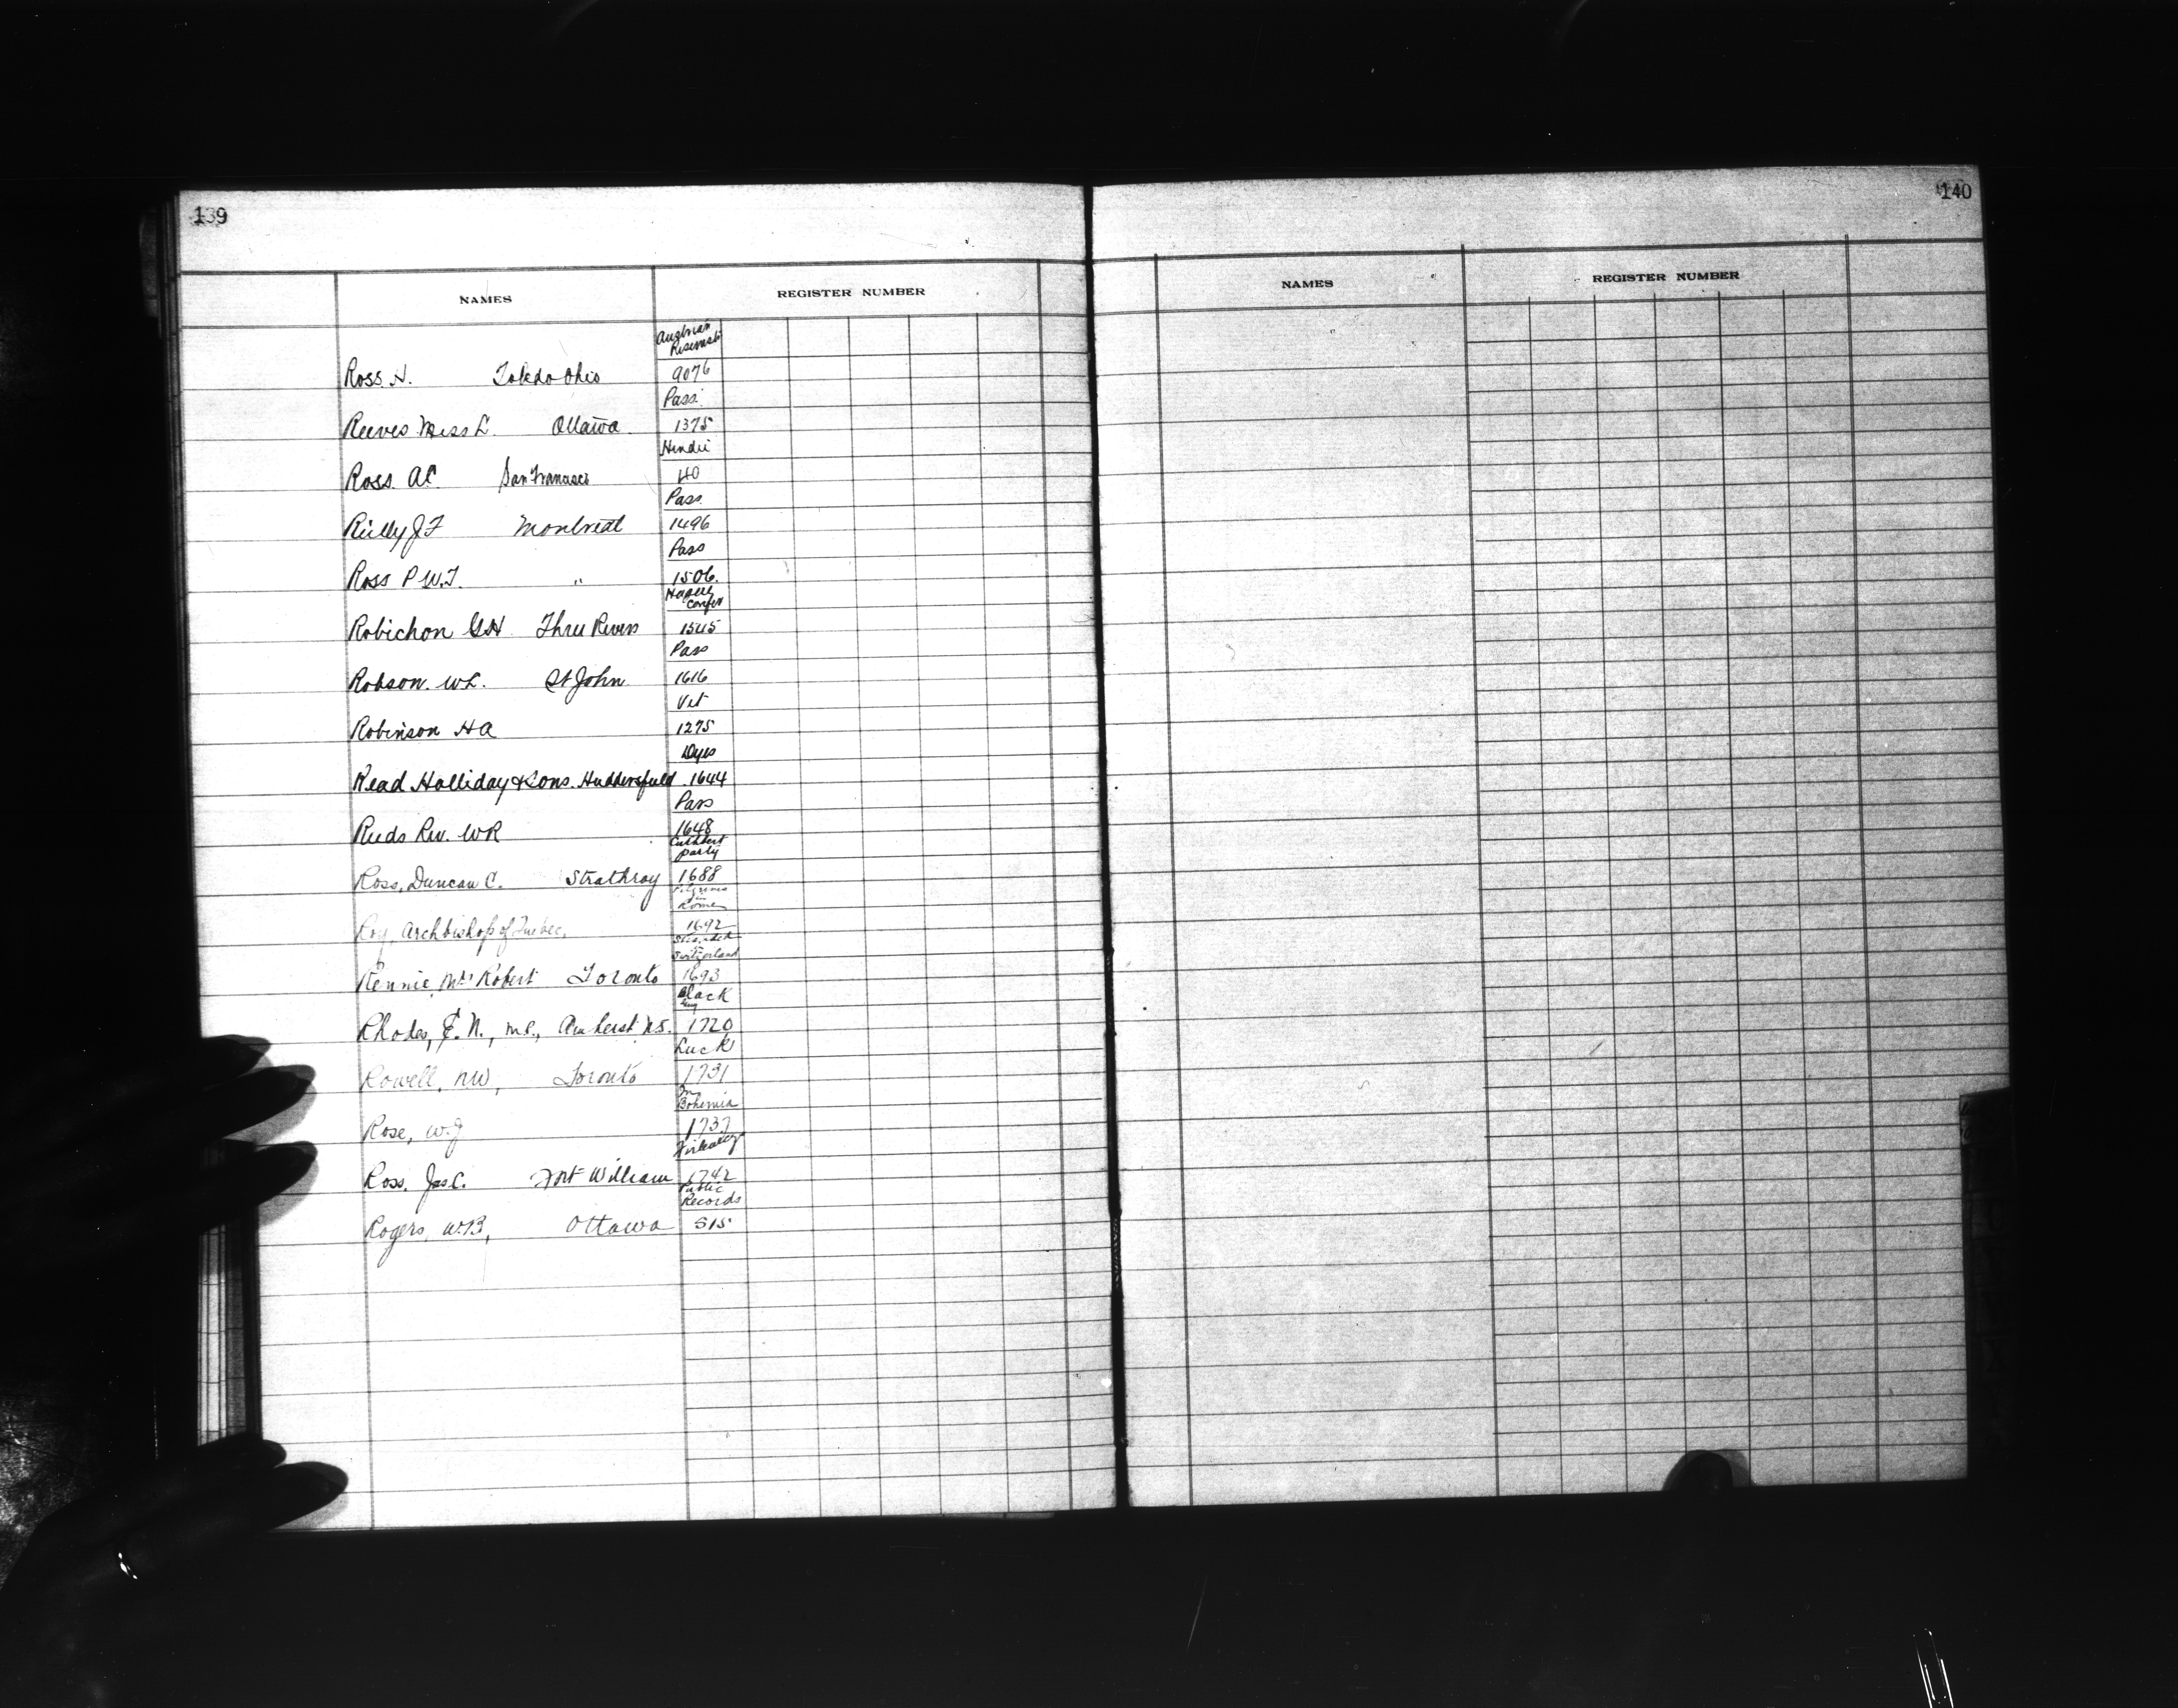 139
NAMES REGISTER NUMBER
Austrian
Ross. H. Toledo Ohio 9076
Pass.
Reeves Miss L. Ottawa 1375
Ross. A.C. San Francisco 40
Pass
Reilly J F Montreal 1496
Pass
Ross P W.T. " 1506.
Robichon G H Three Rivers 1545
Pass
Robson. W L. St John 1616
Robinson H A 1275
Dyes
Read Holliday & Sons. Huddersfield 1644
Pass
Reeds Rev. W R 1648
Cuthbert
party
Ross, Duncan C. Strathroy 1688
Pilgrims
in
Rome
Roy, Archbishop of Quebec, 1692
Stranded
Switzerland
Rennie, Mr Robert Toronto 1693
Black
Rhodes, E. N., M.P., Amherst N.S. 1720
Luck
Rowell, N W, Toronto 1731
In
Bohemia
Rose, W. J 1737
Ross, Jas C. Fort William 1742
Public
Records
Rogers, W.B, Ottawa 515
140
NAMES REGISTER NUMBER